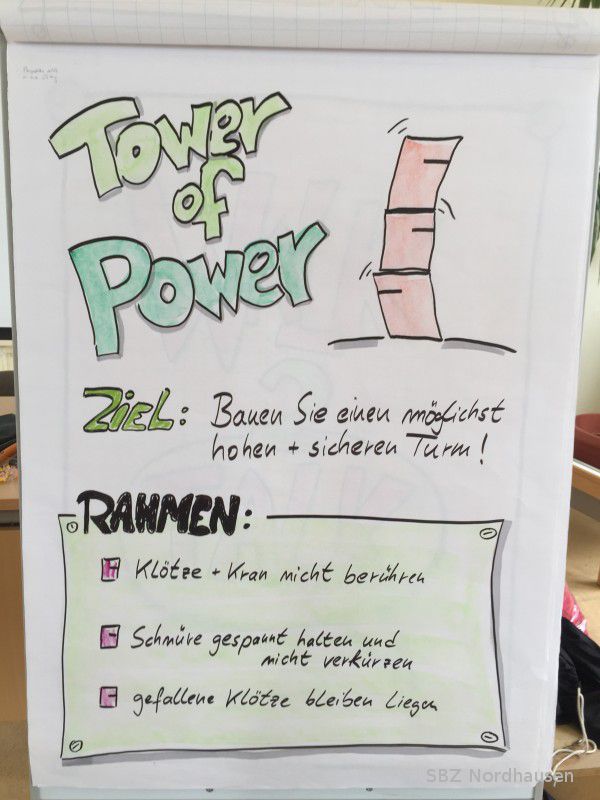 Tower
of
Power
ZIEL: Bauen Sie einen möglichst
hohen + sicheren Turm!
RAHMEN:
Klötze + Kran nicht berühren
Schnüre gespannt halten und
nicht verkürzen
gefallene Klötze bleiben liegen
SBZ Nordhausen